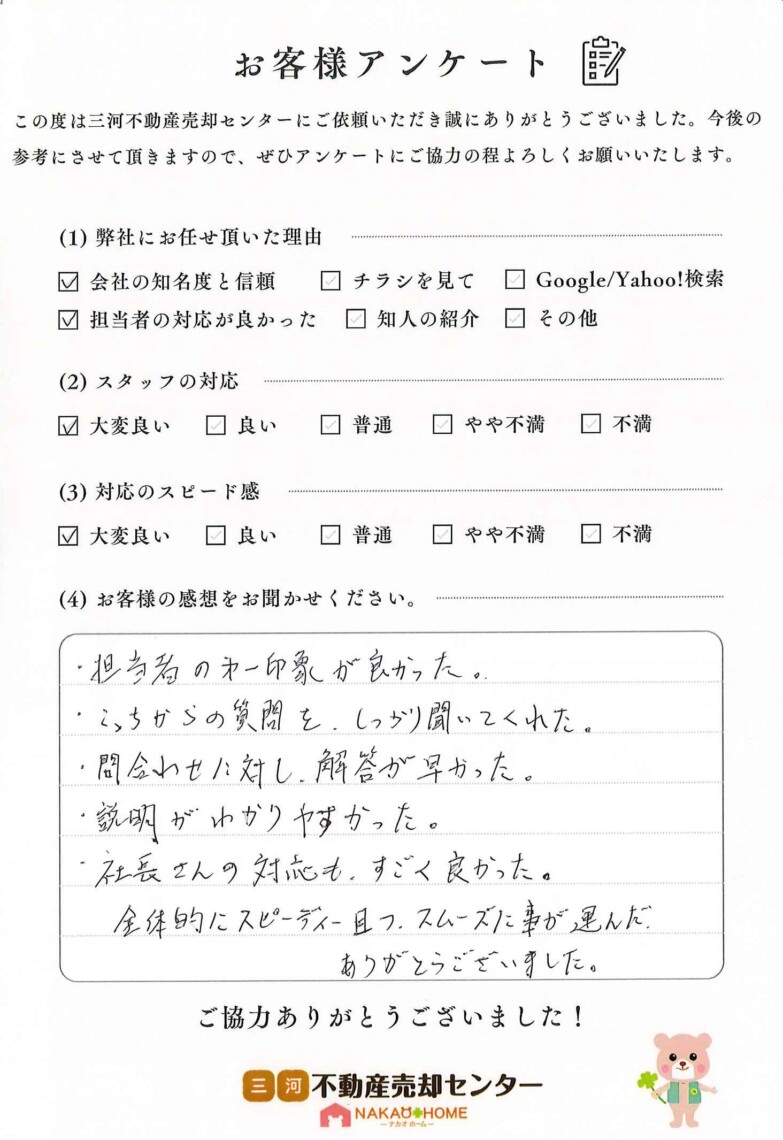 お客様アンケート
この度は三河不動産売却センターにご依頼いただき誠にありがとうございました。今後の
参考にさせて頂きますので、ぜひアンケートにご協力の程よろしくお願いいたします。
(1) 弊社にお任せ頂いた理由
☑ 会社の知名度と信頼 □ チラシを見て □ Google/Yahoo!検索
☑ 担当者の対応が良かった □ 知人の紹介 □ その他
(2) スタッフの対応
☑ 大変良い □ 良い □ 普通 □ やや不満 □ 不満
(3) 対応のスピード感
☑ 大変良い □ 良い □ 普通 □ やや不満 □ 不満
(4) お客様の感想をお聞かせください。
・担当者の才一印象が良かった。
・こっちからの質問を、しっかり聞いてくれた。
・問合わせに対し、解答が早かった。
・説明がわかりやすかった。
・社長さんの対応も、すごく良かった。
全体的にスピーディー且つ、スムーズに事が運んだ。
ありがとうございました。
ご協力ありがとうございました！
三河不動産売却センター
NAKAO HOME
ーナカオホームー